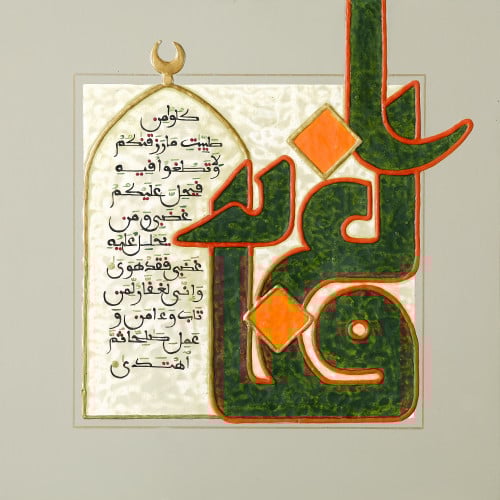 كلوا من
طيبت ما رزقنكم
ولا تطغوا فيه
فيحل عليكم
غضبي ومن
يحلل عليه
غضبي فقد هوى
وإني لغفار لمن
تاب وءامن و
عمل صلحا ثم
اهتدى